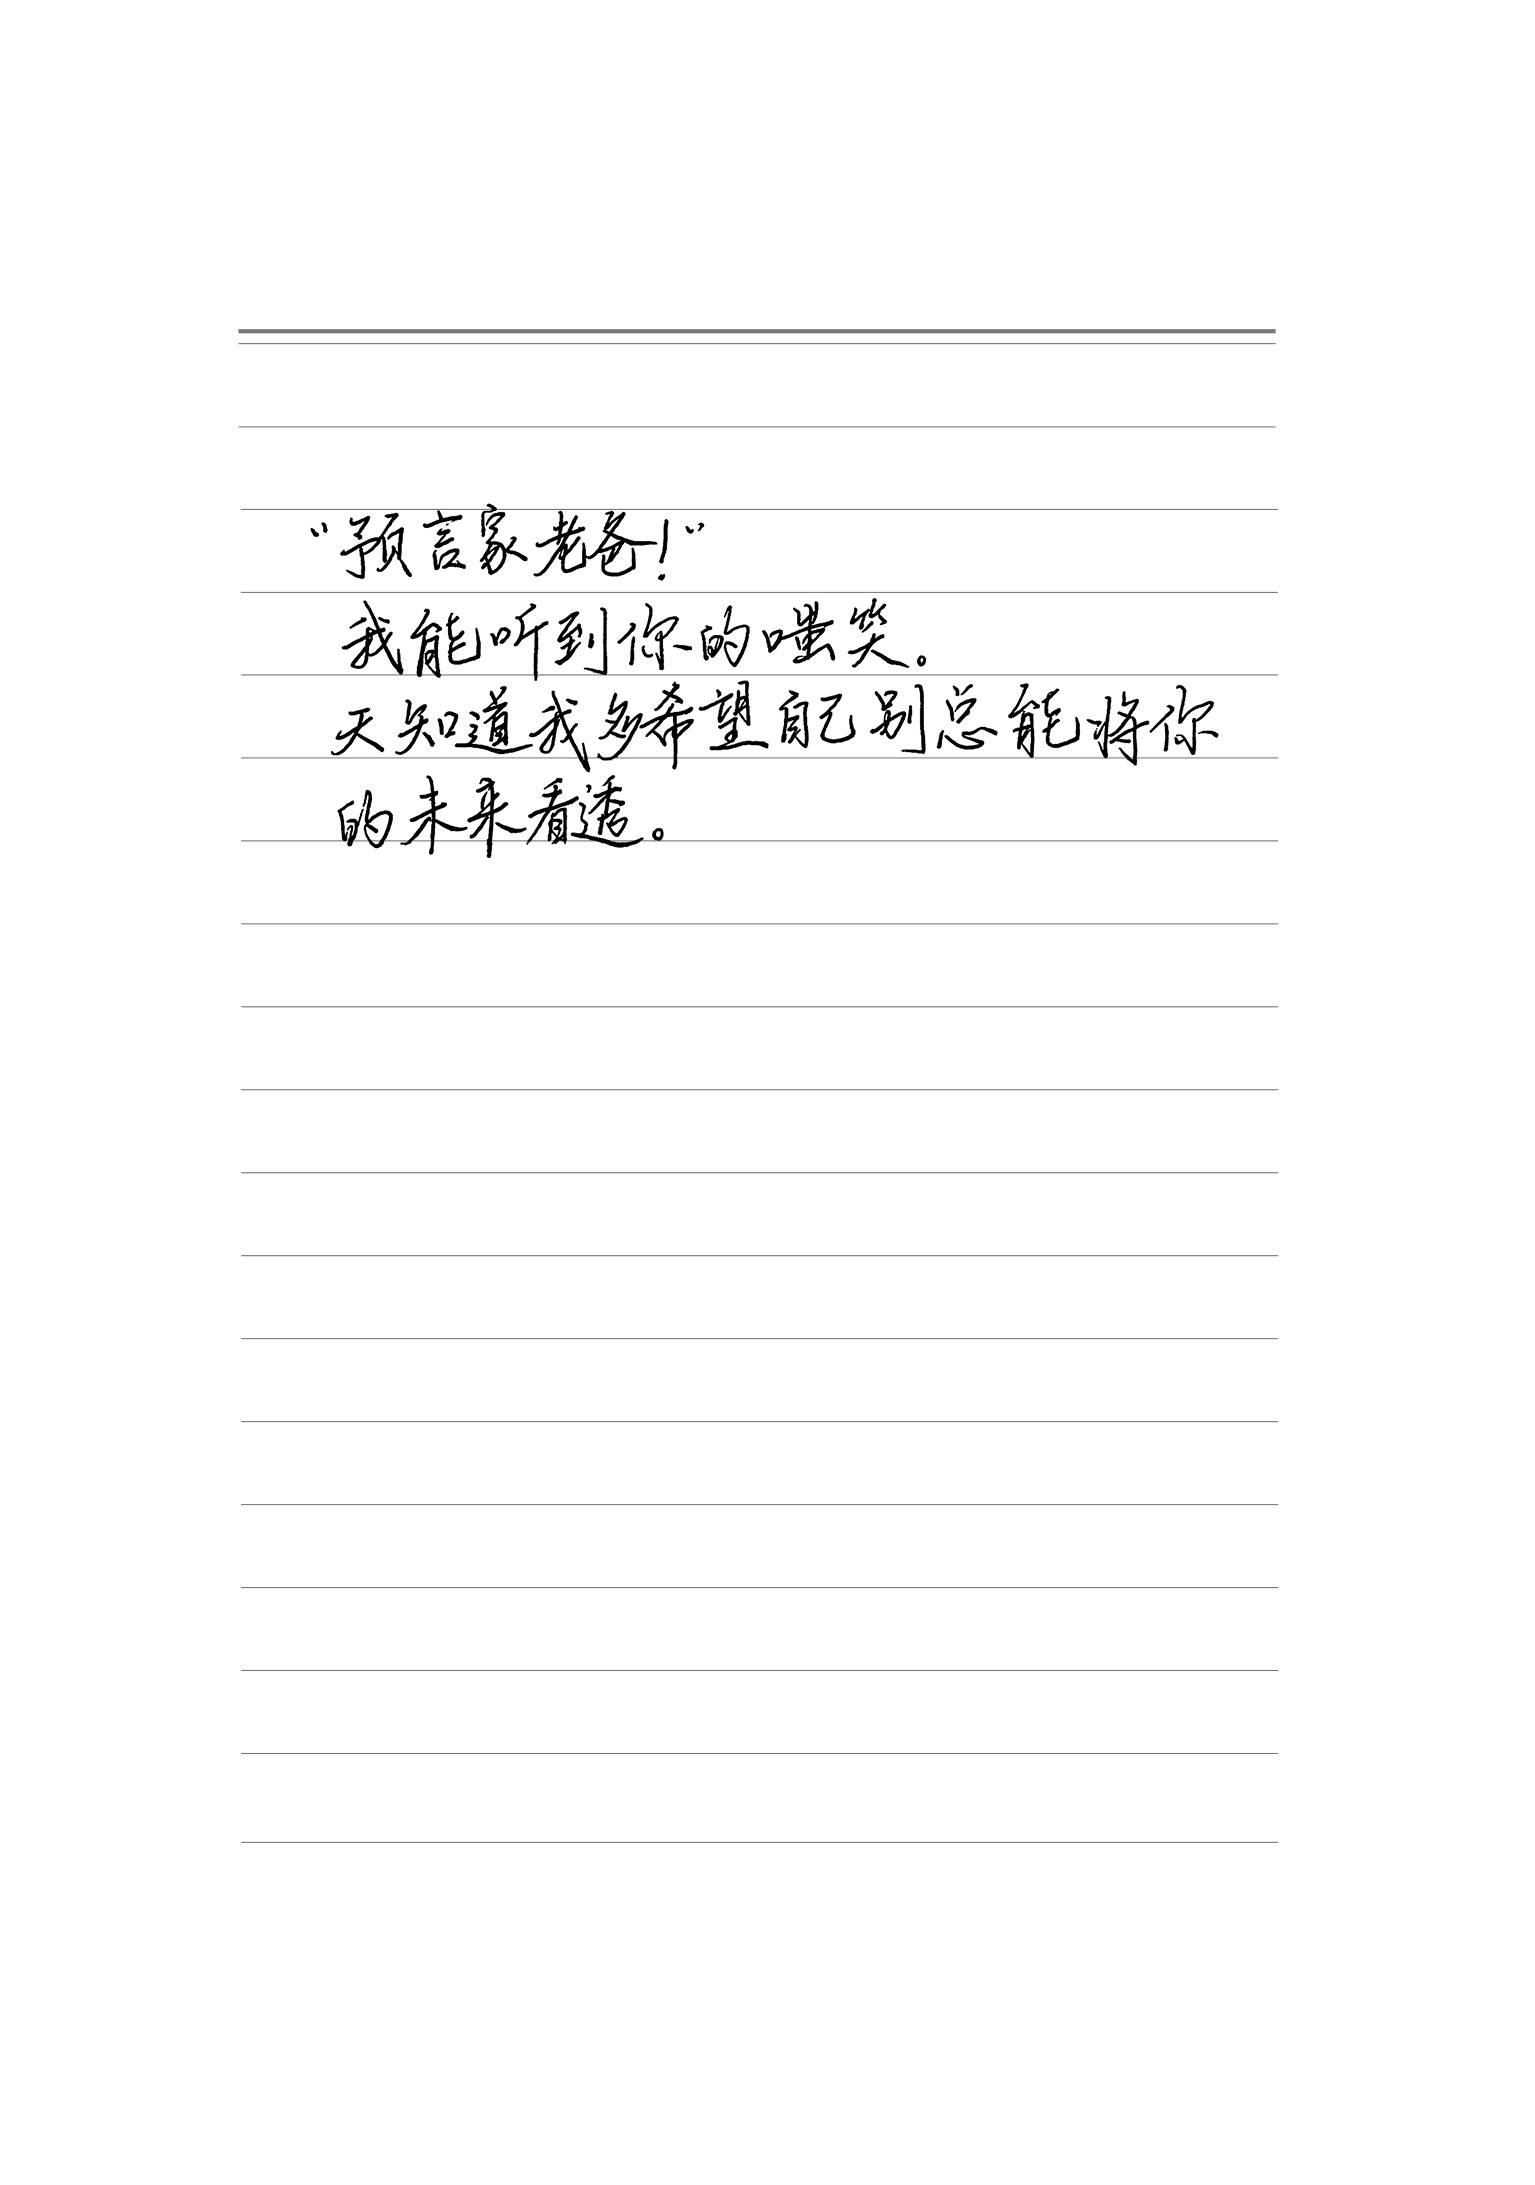 “预言家老爸！”
我能听到你的嗤笑。
天知道我多希望自己别总能将你
的未来看透。